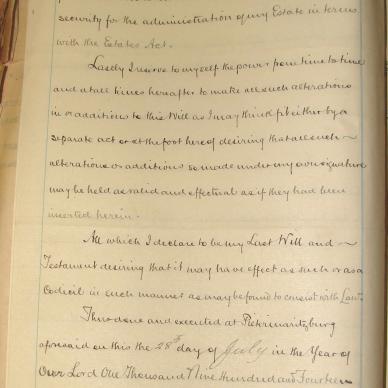 security for the administration of my Estate in terms
with the Estates Act.
Lastly I reserve to myself the power from time to time
and at all times hereafter to make all such alterations
in or additions to this Will as I may think fit either by a
separate act or at the foot hereof desiring that all such ~
alterations or additions so made under my own signature
may be held as valid and effectual as if they had been
inserted herein.
All which I declare to be my Last Will and ~
Testament desiring that it may have effect as such or as a
Codicil in such manner as may be found to consist with Law.
Thus done and executed at Pietermaritzburg
aforesaid on this the 28th day of July in the Year of
Our Lord One Thousand Nine Hundred and Fourteen